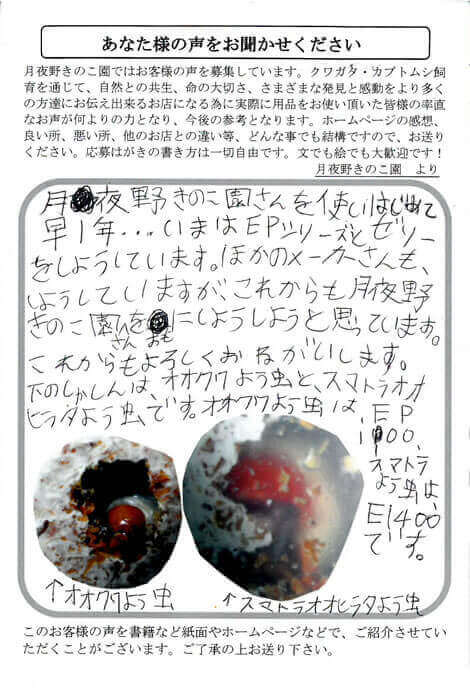 あなた様の声をお聞かせください
月夜野きのこ園ではお客様の声を募集しています。クワガタ・カブトムシ飼
育を通じて、自然との共生、命の大切さ、さまざまな発見と感動をより多く
の方達にお伝え出来るお店になる為に実際に用品をお使い頂いた皆様の率直
なお声が何よりの力となり、今後の参考となります。ホームページの感想、
良い所、悪い所、他のお店との違い等、どんな事でも結構ですので、お送り
ください。応募はがきの書き方は一切自由です。文でも絵でも大歓迎です！
月夜野きのこ園　より
月夜野きのこ園さんを使いはじめて
早1年...いまはEPシリーズとゼリー
をしようしています。ほかのメーカーさんも、
しようしていますが、これからも月夜野
きのこ園さんをおもにしようしようと思っています。
これからもよろしくおねがいします。
下のしゃしんは、オオクワよう虫と、スマトラオオ
ヒラタよう虫です。オオクワよう虫は、EP
1100、
スマトラ
よう虫は、
E1400
です。
↑オオクワよう虫
↑スマトラオオヒラタよう虫
このお客様の声を書籍など紙面やホームページなどで、ご紹介させてい
ただくことがございます。ご了承の上お送り下さい。